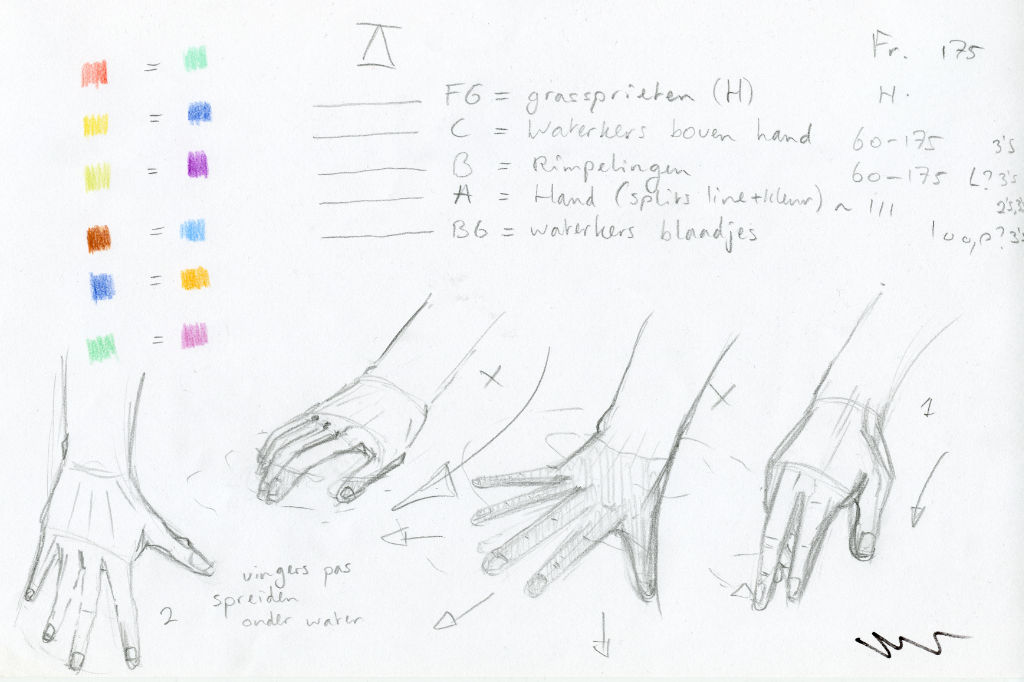 Fr. 175
FG = grassprieten (H) H.
C = Waterkers boven hand 60-175 3's
B = Rimpelingen 60-175 L? 3's
A = Hand (splits line+kleur) ~
BG = waterkers blaadjes
X
X
1
vingers pas
spreiden
onder water
2